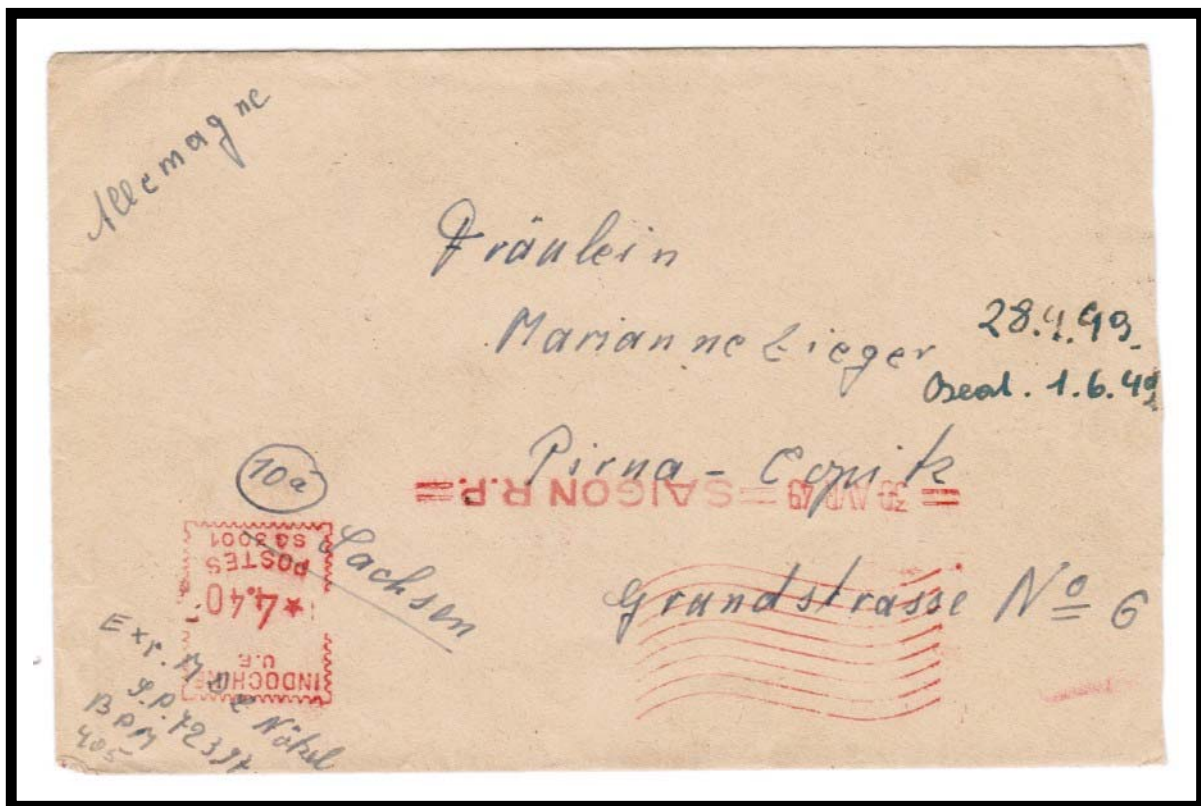 Allemagne
Fräulein
Marianne Zieger
28.4.49.
1.6.49
Pirna - Copitz
= 30 AVR 49 = SAIGON R.P. =
10a
Sachsen
Grundstrasse No 6
INDOCHINE
U.E.
★4.40
POSTES
SG3001
Exp. Nökel
S.P. 72397
BPM
405